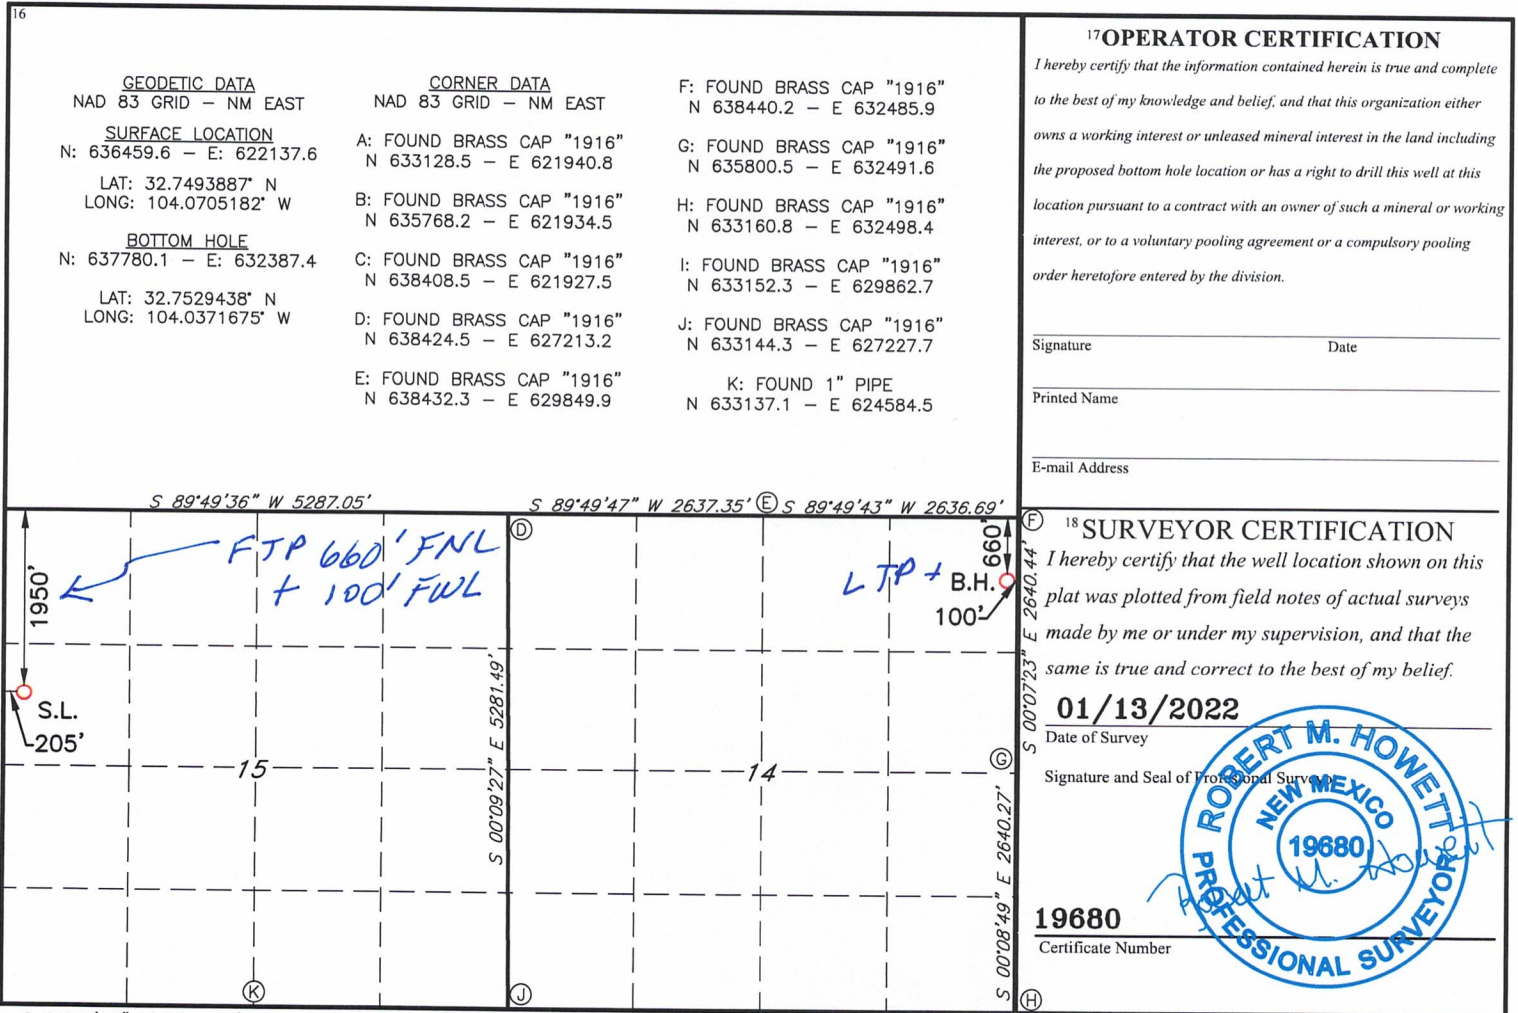 16
GEODETIC DATA
NAD 83 GRID – NM EAST
SURFACE LOCATION
N: 636459.6 – E: 622137.6
LAT: 32.7493887° N
LONG: 104.0705182° W
BOTTOM HOLE
N: 637780.1 – E: 632387.4
LAT: 32.7529438° N
LONG: 104.0371675° W
CORNER DATA
NAD 83 GRID – NM EAST
A: FOUND BRASS CAP "1916"
N 633128.5 – E 621940.8
B: FOUND BRASS CAP "1916"
N 635768.2 – E 621934.5
C: FOUND BRASS CAP "1916"
N 638408.5 – E 621927.5
D: FOUND BRASS CAP "1916"
N 638424.5 – E 627213.2
E: FOUND BRASS CAP "1916"
N 638432.3 – E 629849.9
F: FOUND BRASS CAP "1916"
N 638440.2 – E 632485.9
G: FOUND BRASS CAP "1916"
N 635800.5 – E 632491.6
H: FOUND BRASS CAP "1916"
N 633160.8 – E 632498.4
I: FOUND BRASS CAP "1916"
N 633152.3 – E 629862.7
J: FOUND BRASS CAP "1916"
N 633144.3 – E 627227.7
K: FOUND 1" PIPE
N 633137.1 – E 624584.5
17 OPERATOR CERTIFICATION
I hereby certify that the information contained herein is true and complete
to the best of my knowledge and belief, and that this organization either
owns a working interest or unleased mineral interest in the land including
the proposed bottom hole location or has a right to drill this well at this
location pursuant to a contract with an owner of such a mineral or working
interest, or to a voluntary pooling agreement or a compulsory pooling
order heretofore entered by the division.
Signature Date
Printed Name
E-mail Address
S 89°49'36" W 5287.05'
S 89°49'47" W 2637.35' E S 89°49'43" W 2636.69'
1950'
FTP 660' FNL
+ 100' FWL
S.L.
205'
15
S 00°09'27" E 5281.49'
K
D
LTP + B.H.
660'
100'
14
J
F
S 00°07'23" E 2640.44'
G
S 00°08'49" E 2640.27'
H
18 SURVEYOR CERTIFICATION
I hereby certify that the well location shown on this
plat was plotted from field notes of actual surveys
made by me or under my supervision, and that the
same is true and correct to the best of my belief.
01/13/2022
Date of Survey
Signature and Seal of Professional Surveyor
ROBERT M. HOWETT
NEW MEXICO
19680
PROFESSIONAL SURVEYOR
Robert M. Howett
19680
Certificate Number